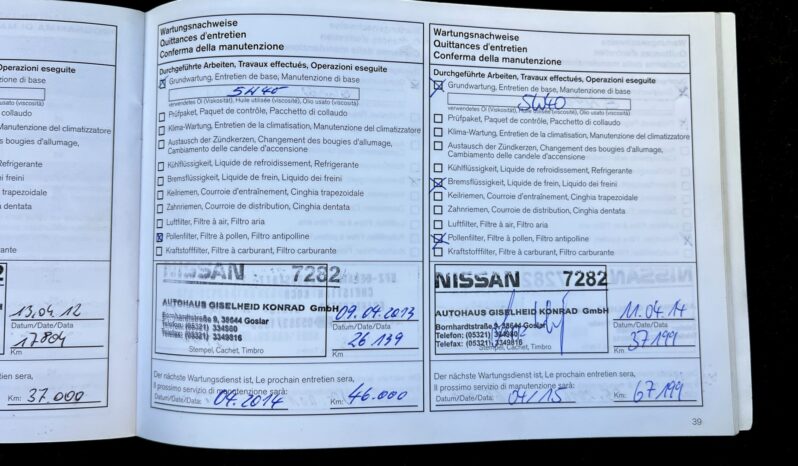 Operazioni eseguite
di base
usato (viscosità)
collaudo
Manutenzione del climatizzatore
bougies d'allumage,
Refrigerante
dei freini
trapezoidale
dentata
carburante
13.04.12
Datum/Date/Data
17804
Km
entretien sera,
Km: 37.000
Wartungsnachweise
Quittances d'entretien
Conferma della manutenzione
Durchgeführte Arbeiten, Travaux effectués, Operazioni eseguite
Grundwartung, Entretien de base, Manutenzione di base
5W40
verwendetes Öl (Viskosität), Huile utilisée (viscosité), Olio usato (viscosità)
Prüfpaket, Paquet de contrôle, Pacchetto di collaudo
Klima-Wartung, Entretien de la climatisation, Manutenzione del climatizzatore
Austausch der Zündkerzen, Changement des bougies d'allumage,
Cambiamento delle candele d'accensione
Kühlflüssigkeit, Liquide de refroidissement, Refrigerante
Bremsflüssigkeit, Liquide de frein, Liquido dei freini
Keilriemen, Courroie d'entraînement, Cinghia trapezoidale
Zahnriemen, Courroie de distribution, Cinghia dentata
Luftfilter, Filtre à air, Filtro aria
Pollenfilter, Filtre à pollen, Filtro antipolline
Kraftstofffilter, Filtre à carburant, Filtro carburante
NISSAN 7282
AUTOHAUS GISELHEID KONRAD GmbH
Bornhardtstraße 9, 38644 Goslar
Telefon: (05321) 334980
Telefax: (05321) 3349816
Stempel, Cachet, Timbro
09.04.2013
Datum/Date/Data
26139
Km
Der nächste Wartungsdienst ist, Le prochain entretien sera,
Il prossimo servizio di manutenzione sarà:
Datum/Date/Data: 04.2014 Km: 46.000
Wartungsnachweise
Quittances d'entretien
Conferma della manutenzione
Durchgeführte Arbeiten, Travaux effectués, Operazioni eseguite
Grundwartung, Entretien de base, Manutenzione di base
5W40
verwendetes Öl (Viskosität), Huile utilisée (viscosité), Olio usato (viscosità)
Prüfpaket, Paquet de contrôle, Pacchetto di collaudo
Klima-Wartung, Entretien de la climatisation, Manutenzione del climatizzatore
Austausch der Zündkerzen, Changement des bougies d'allumage,
Cambiamento delle candele d'accensione
Kühlflüssigkeit, Liquide de refroidissement, Refrigerante
Bremsflüssigkeit, Liquide de frein, Liquido dei freini
Keilriemen, Courroie d'entraînement, Cinghia trapezoidale
Zahnriemen, Courroie de distribution, Cinghia dentata
Luftfilter, Filtre à air, Filtro aria
Pollenfilter, Filtre à pollen, Filtro antipolline
Kraftstofffilter, Filtre à carburant, Filtro carburante
NISSAN 7282
AUTOHAUS GISELHEID KONRAD GmbH
Bornhardtstraße 9, 38644 Goslar
Telefon: (05321) 334980
Telefax: (05321) 3349816
Stempel, Cachet, Timbro
11.04.14
Datum/Date/Data
37199
Km
Der nächste Wartungsdienst ist, Le prochain entretien sera,
Il prossimo servizio di manutenzione sarà:
Datum/Date/Data: 04/15 Km: 67199
39